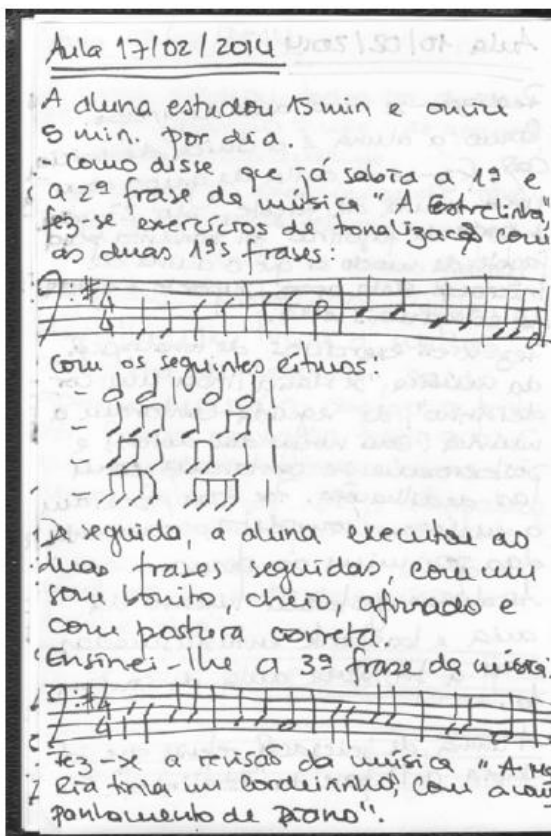 Aula 17/02/2014
A aluna estudou 15 min e ouviu
5 min. por dia.
Como disse que já sabia a 1ª e
a 2ª frase da música "A Estrelinha",
fez-se exercícios de tonalização com
as duas 1ªs frases:
Com os seguintes ritmos:
De seguida, a aluna executou as
duas frases seguidas, com um
som bonito, cheio, afinado e
com postura correta.
Ensinei-lhe a 3ª frase da música:
Fez-se a revisão da música "A Ma
ria tinha um cordeirinho, com a
panhamento de piano".